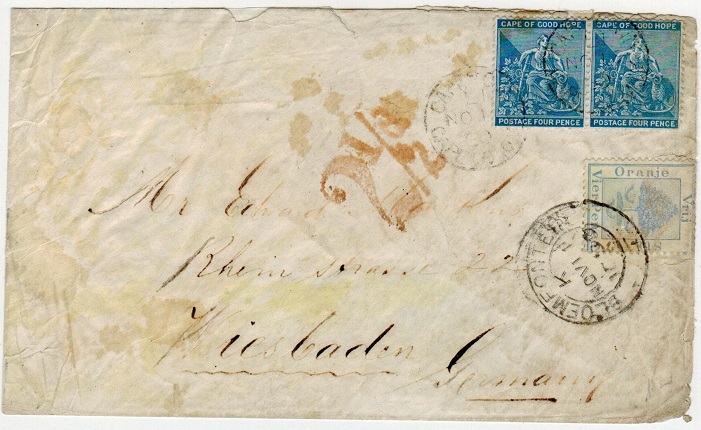 CAPE OF GOOD HOPE
POSTAGE FOUR PENCE
CAPE OF GOOD HOPE
POSTAGE FOUR PENCE
Oranje
Vrij
Vier Pence
BLOEMFONTEIN
K
NOV 11
2 1/2
Mr Edward
Rhein strasse 22
Wiesbaden
Germany